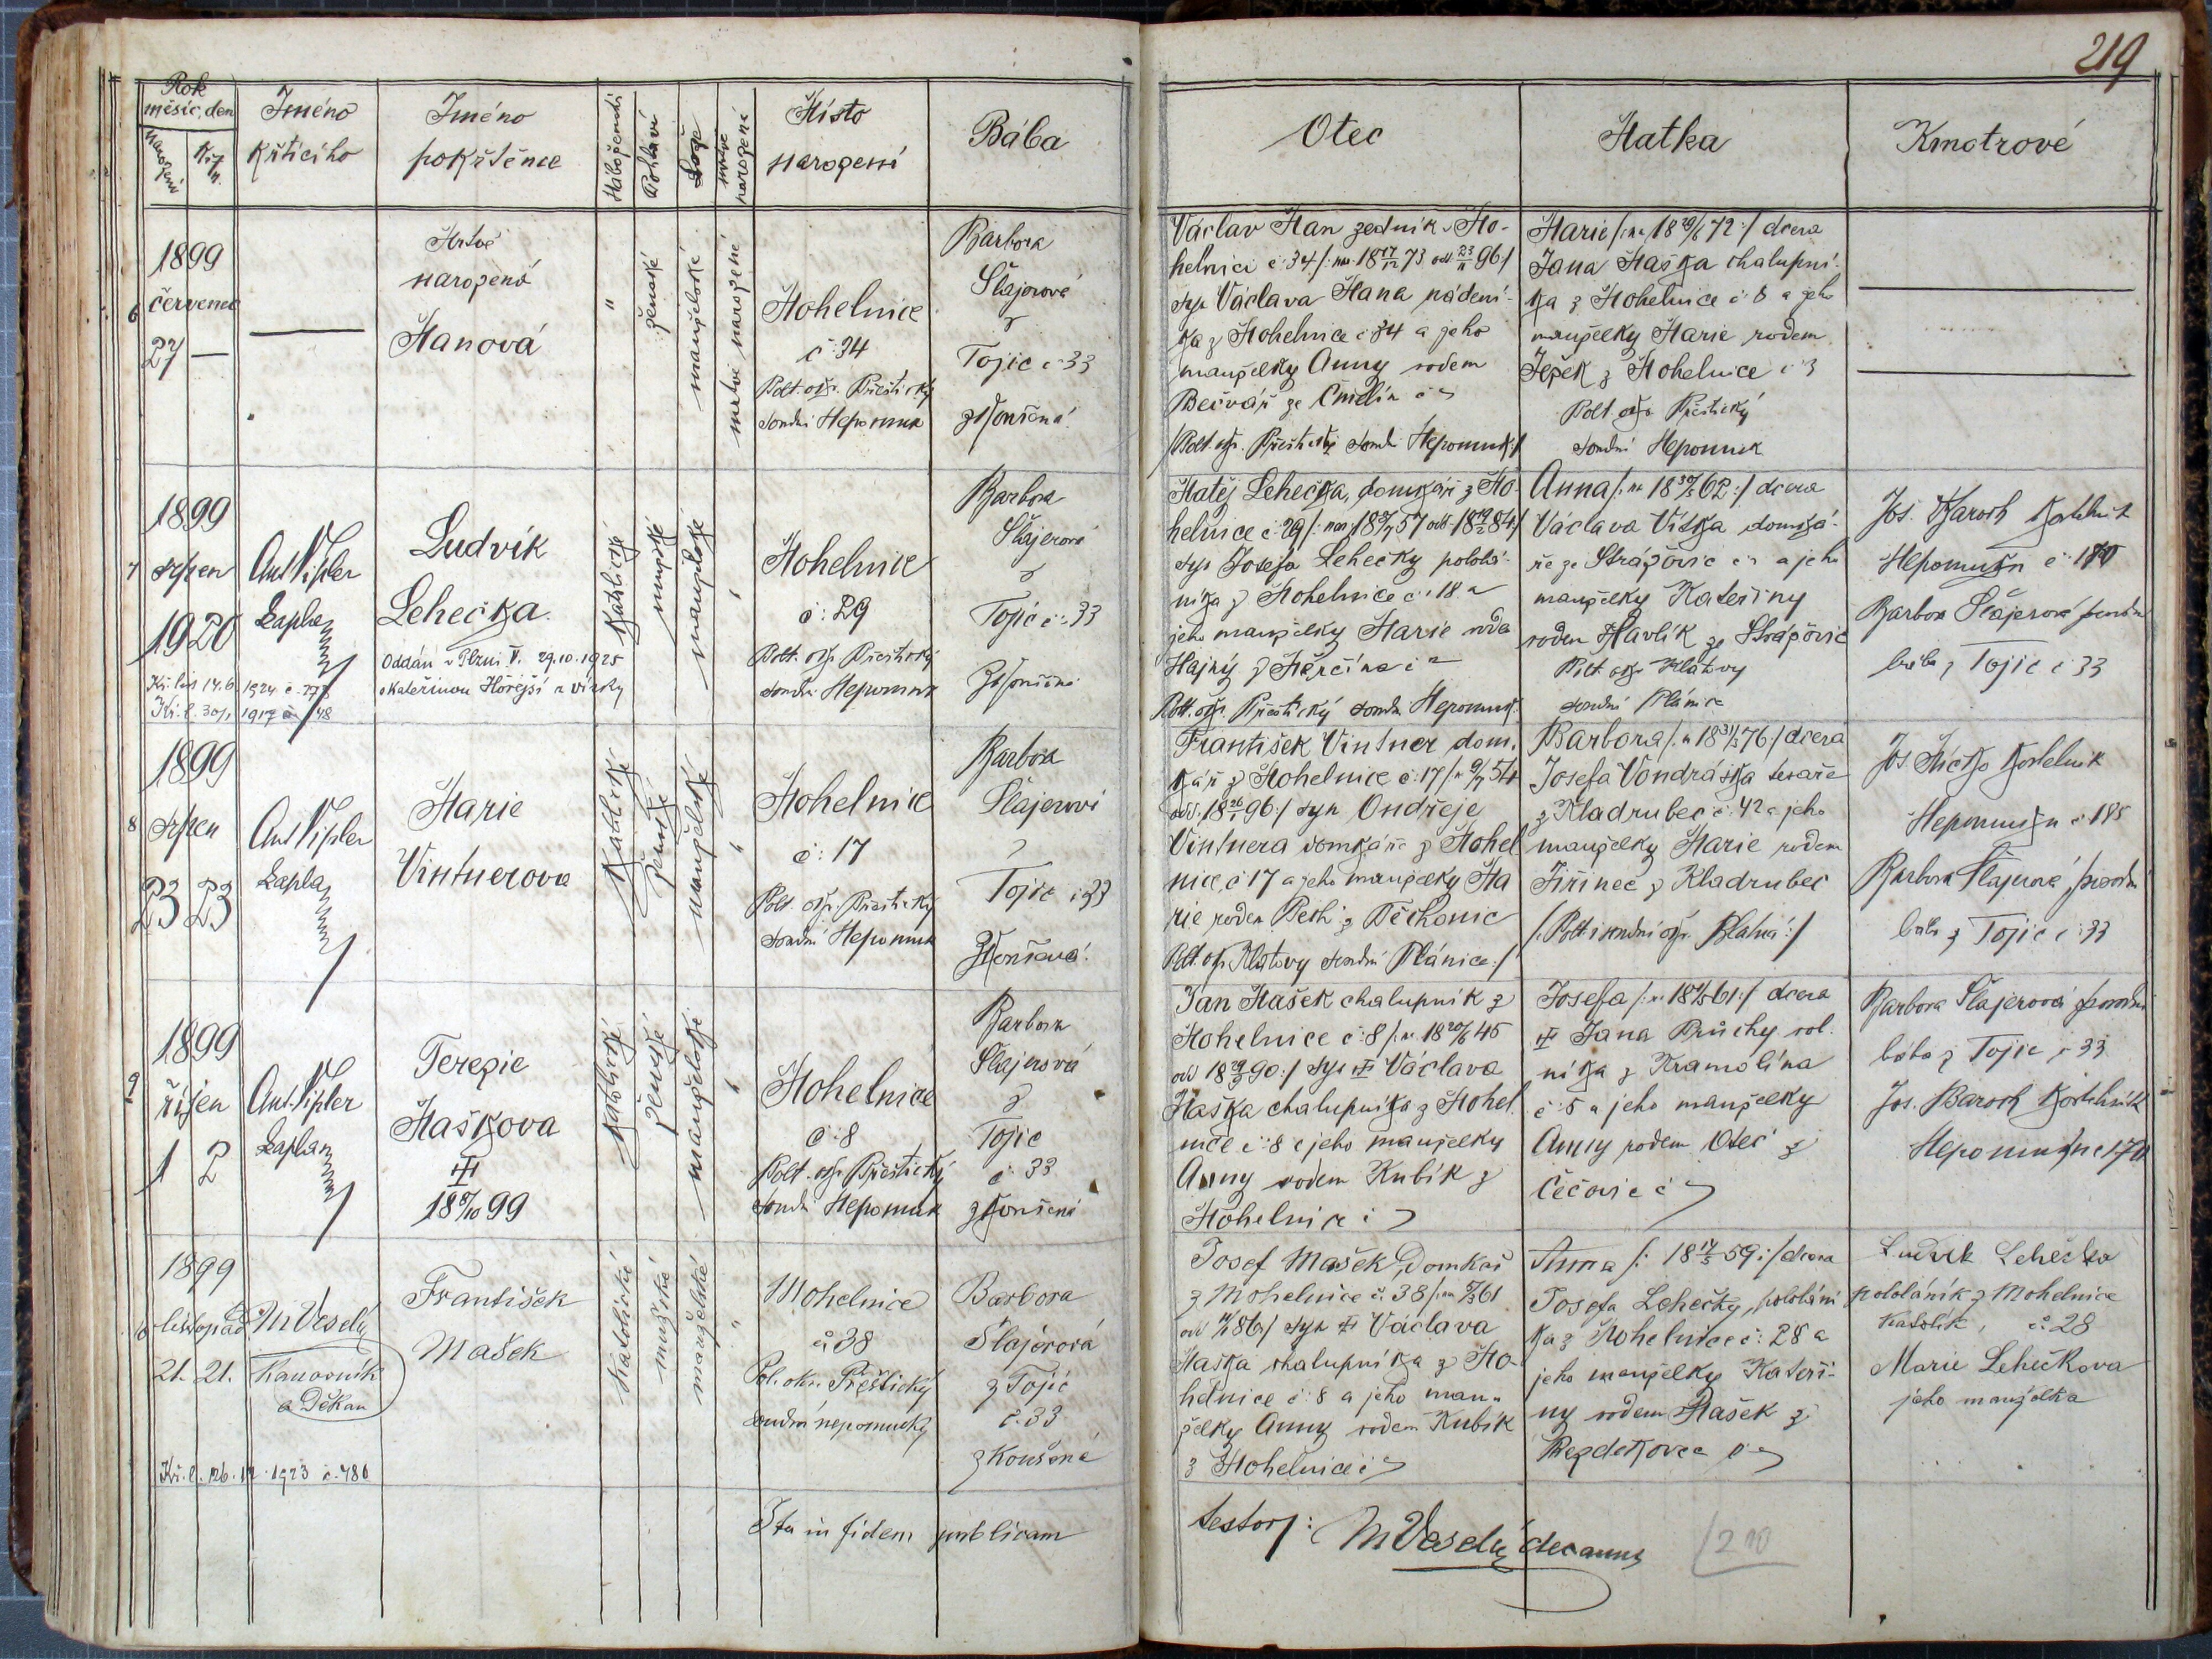 219
Rok
měsíc, den
Narození
Křtu
Jméno
křtícího
Jméno
pokřtěnce
Náboženství
Pohlaví
Lože
mrtvě
narozené
Místo
narození
Bába
Otec
Matka
Kmotrové
6
1899
červenec
27 —
Mrtvě
narozená
Manová
"
ženské
manželské
mrtvě narozené
Mohelnice
č: 34
Polt. okr. Přeštický
soudní Nepomuk
Barbora
Šlajerová
z
Tojic č: 33
zkoušená
Václav Man zedník v Mo-
helnici č: 34 /: nar. 18 17/12 73 odd. 23/11 96 :/
syn Václava Mana nádení-
ka z Mohelnice č: 34 a jeho
manželky Anny rodem
Bečvář ze Čmelín č:
/Polt. okr. Přeštický soudní Nepomuk:/
Marie /: na 18 29/6 72 :/ dcera
Jana Maška chalupní-
ka z Mohelnice č: 8 a jeho
manželky Marie rodem
Ježek z Mohelnice č: 3
Polt. okr. Přeštický
soudní Nepomuk
7
1899
srpen
19 20
Kř. list 14.6. 1924 č.
Kř. l. 30/1 1917 č. 48
Ant Vipler
kaplan
Ludvík
Lehečka
Oddán v Plzni V. 29.10.1925
s Kateřinou Hořejší
katolické
mužské
manželské
Mohelnice
č: 29
Polt. okr. Přeštický
soudní Nepomuk
Barbora
Šlajerová
z
Tojic č: 33
zkoušená
Matěj Lehečka, domkář z Mo-
helnice č: 29 /: nar. 18 57 odd. 18 19/2 84 :/
syn Josefa Lehečky pololá-
níka z Mohelnice č: 18 a
jeho manželky Marie roda
Hajný z Měrčína č:
Polt. okr. Přeštický soudní Nepomuk
Anna /: na 18 30/5 62 :/ dcera
Václava Víška domká-
ře ze Strážovic č: a jeho
manželky Kateřiny
rodem Havlík ze Strážovic
Polt. okr. Klatovy
soudní Plánice
Jos. Baroch kostelník
Nepomuku č: 170
Barbora Šlajerová porodní
bába z Tojic č: 33
8
1899
srpen
23 23
Ant Vipler
kaplan
Marie
Vintnerova
katolické
ženské
manželské
Mohelnice
č: 17
Polt. okr. Přeštický
soudní Nepomuk
Barbora
Šlajerová
z
Tojic č: 33
zkoušená
František Vintner dom-
kář z Mohelnice č: 17 /: n 9/7 54
odd. 18 26/1 96 :/ syn Ondřeje
Vintnera domkáře z Mohel
nice, č: 17 a jeho manželky Ma
rie rodem Pech z Těchonic
Polt. okr. Klatovy soudní Plánice :/
Barbora /: n 18 31/3 76 :/ dcera
Josefa Vondráška tesaře
z Kladrubec č: 42 a jeho
manželky Marie rodem
Jiřinec z Kladrubec
/: Polt. i soudní okr. Blatná :/
Jos kostelník
Nepomuku č: 185
Barbora Šlajerová, porodní
bába z Tojic č: 33
9
1899
říjen
1 2
Ant. Vipler
kaplan
Terezie
Maškova
18 99
katolické
ženské
manželské
Mohelnice
č: 8
Polt. okr. Přeštický
soudní Nepomuk
Barbora
Šlajrová
z
Tojic
č: 33
zkoušená
Jan Mašek chalupník z
Mohelnice č: 8 /: n. 18 20/6 45
odd 18 90 :/ syn Václava
Maška chalupníka z Mohel
nice č: 8 a jeho manželky
Anny rodem Kubík z
Mohelnice č:
Josefa /: n. 18 61 :/ dcera
Jana Průchy rol
níka z Kramolína
č: 5 a jeho manželky
Anny rodem Oteč z
Čečovic č:
Barbora Šlajerová porodní
bába z Tojic č: 33
Jos. Baroch kostelník
Nepomuk č 170
10
1899
listopad
21. 21.
Kř. l. 26. 12. 1923 č. 486
M Veselý
Kanovník
a Děkan
František
Mašek
katolické
mužské
manželské
Mohelnice
č: 38
Pol. okr. Přeštický
soudní nepomucký
Barbora
Šlajerová
z Tojic
č. 33
zkoušená
Josef Mašek, Domkař
z Mohelnice č. 38 /: na 61
odd 86 :/ syn Václava
Maška chalupníka z Mo-
helnice č: 8 a jeho man-
želky Anny rodem Kubík
z Mohelnice č:
Anna /: 18 17/5 59 :/ dcera
Josefa Lehečky, pololání
ka z Mohelnice č: 28 a
jeho manželky Kateři-
ny rodem Mašek z
Bezdekovce č:
Ludvik Lehečka
pololáník z Mohelnice
katolík, č: 28
Marie Lehečkova
jeho manželka
Ita in fidem publicam
testor: M Veselý decanus